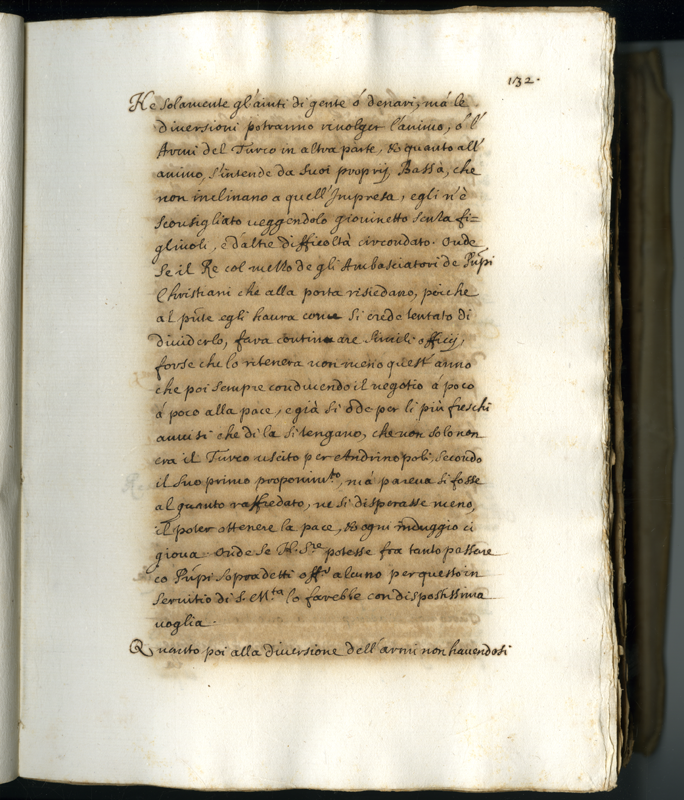 132.
Ne solamente gl'aiuti di gente ó denari, má le
diversioni potranno rivolger l'animo, ó l'
Armi del Turco in altra parte, & quanto all'
animo, s'intende da suoi proprij Bassà, che
non inclinano a quell'Impresa, egli n'è
sconsigliato veggendolo giovinetto senza fi=
glivoli, è d'altre difficoltà circondato. Onde
se il Re col mezzo de gli Ambasciatori de Pñpi
Christiani che alla porta risiedano, poiche
al pñte egli haura come si crede tentato di
divuderlo, fara continuare simili officij,
forse che lo ritenera non meno quest'anno
che poi sempre conducendo il negotio á poco
á poco alla pace, e già si óde per li più freschi
avvisi che di la si tengano, che non solo non
era il Turco uscito per Andrinopoli, secondo
il suo primo proponim.to, má pareva si fosse
al quanto raffredato, ne si disperasse meno,
il poter ottenere la pace, & ogni induggio ci
giova. Onde se N. S.re potesse fra tanto passare
co Pñpi sopradetti off.o alcuno per questo in
servitio di S. M.ta lo farebbe con dispostissima
voglia.
Quanto poi alla diversione dell'armi non havendosi